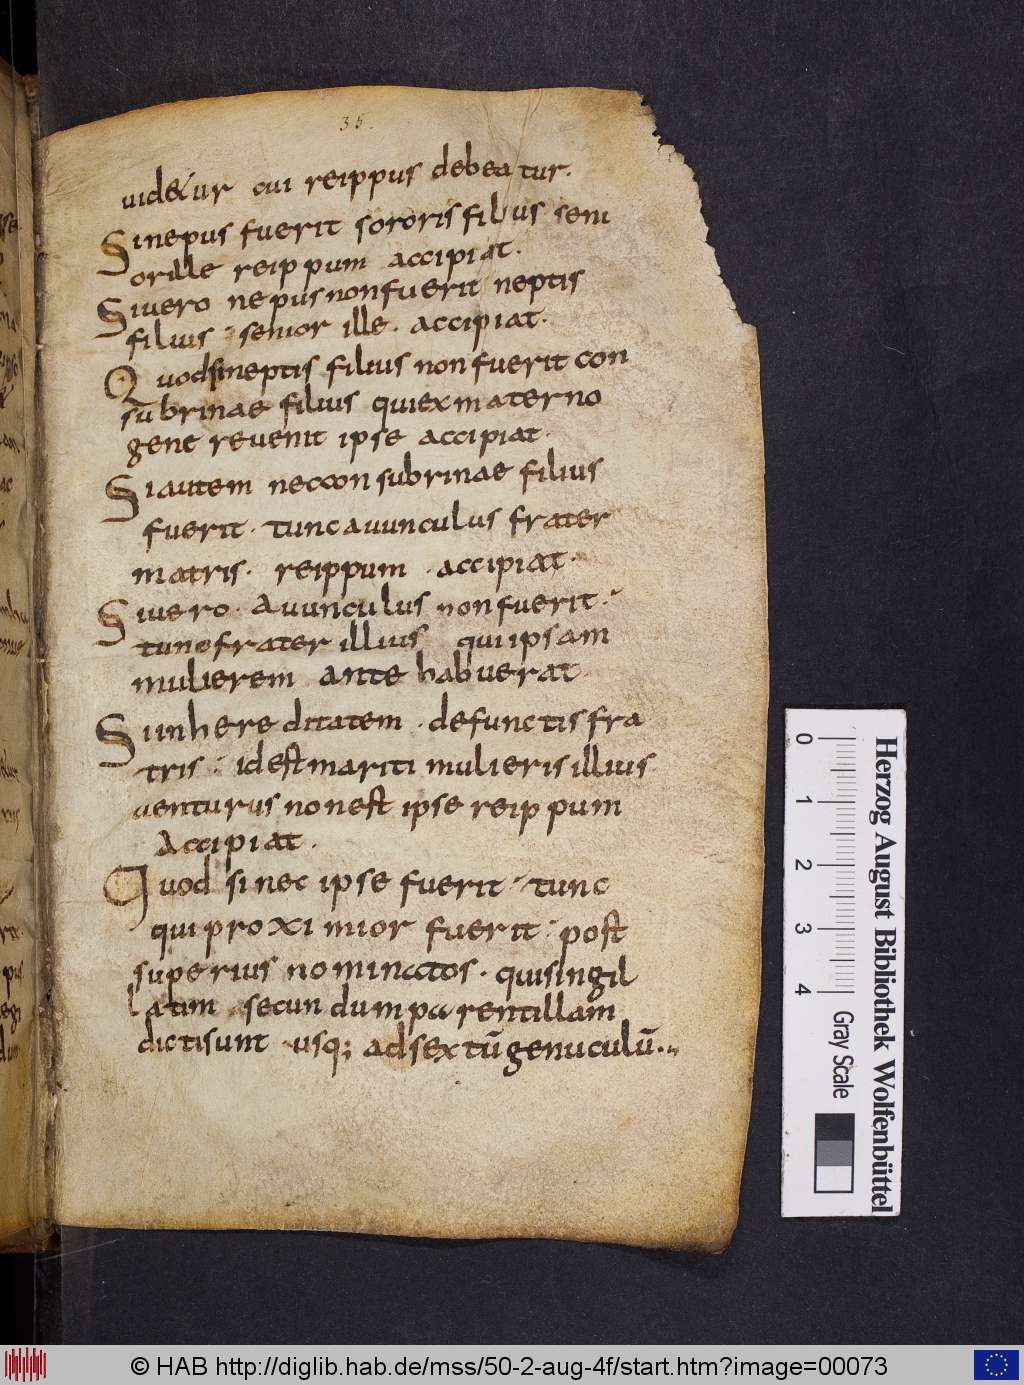 35.
uidetur cui reippus debeatur.
Sinepus fuerit sororis filius seni
orille reippum accipiat.
Siuero nepus non fuerit neptis
filius senior ille. accipiat.
Quodsineptis filius non fuerit con
subrinae filius quiex materno
gene reuenit ipse accipiat.
Siautem neccon subrinae filius
fuerit. tunc auunculus frater
matris. reippum. accipiat.
Siuero. auunculus non fuerit.
tunc frater illius qui ipsam
mulierem ante habuerat.
Siinhereditatem. defunctis fra
tris. idest mariti mulieris illius
uenturus non est ipse reippum
Accipiat.
Quod si nec ipse fuerit. tunc
qui proximior fuerit. post
superius nominatos. quisingil
latim secundum parentillam
dicti sunt usq; ad sextū genuculū.
0 1 2 3 4
Gray Scale
Herzog August Bibliothek Wolfenbüttel
© HAB http://diglib.hab.de/mss/50-2-aug-4f/start.htm?image=00073